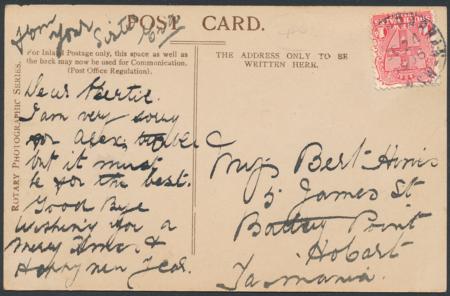 from your Sister
POST CARD.
For Inland Postage only, this space as well as
the back may now be used for Communication.
(Post Office Regulation).
THE ADDRESS ONLY TO BE
WRITTEN HERE.
ROTARY PHOTOGRAPHIC SERIES.
Dear Bertie.
I am very sorry
for Alex,
but it must
be for the best.
Good Bye
Wishing you a
Merry Xmas &
Happy new Year.
Bert
5 James St
Battery Point
Hobart
Tasmania.